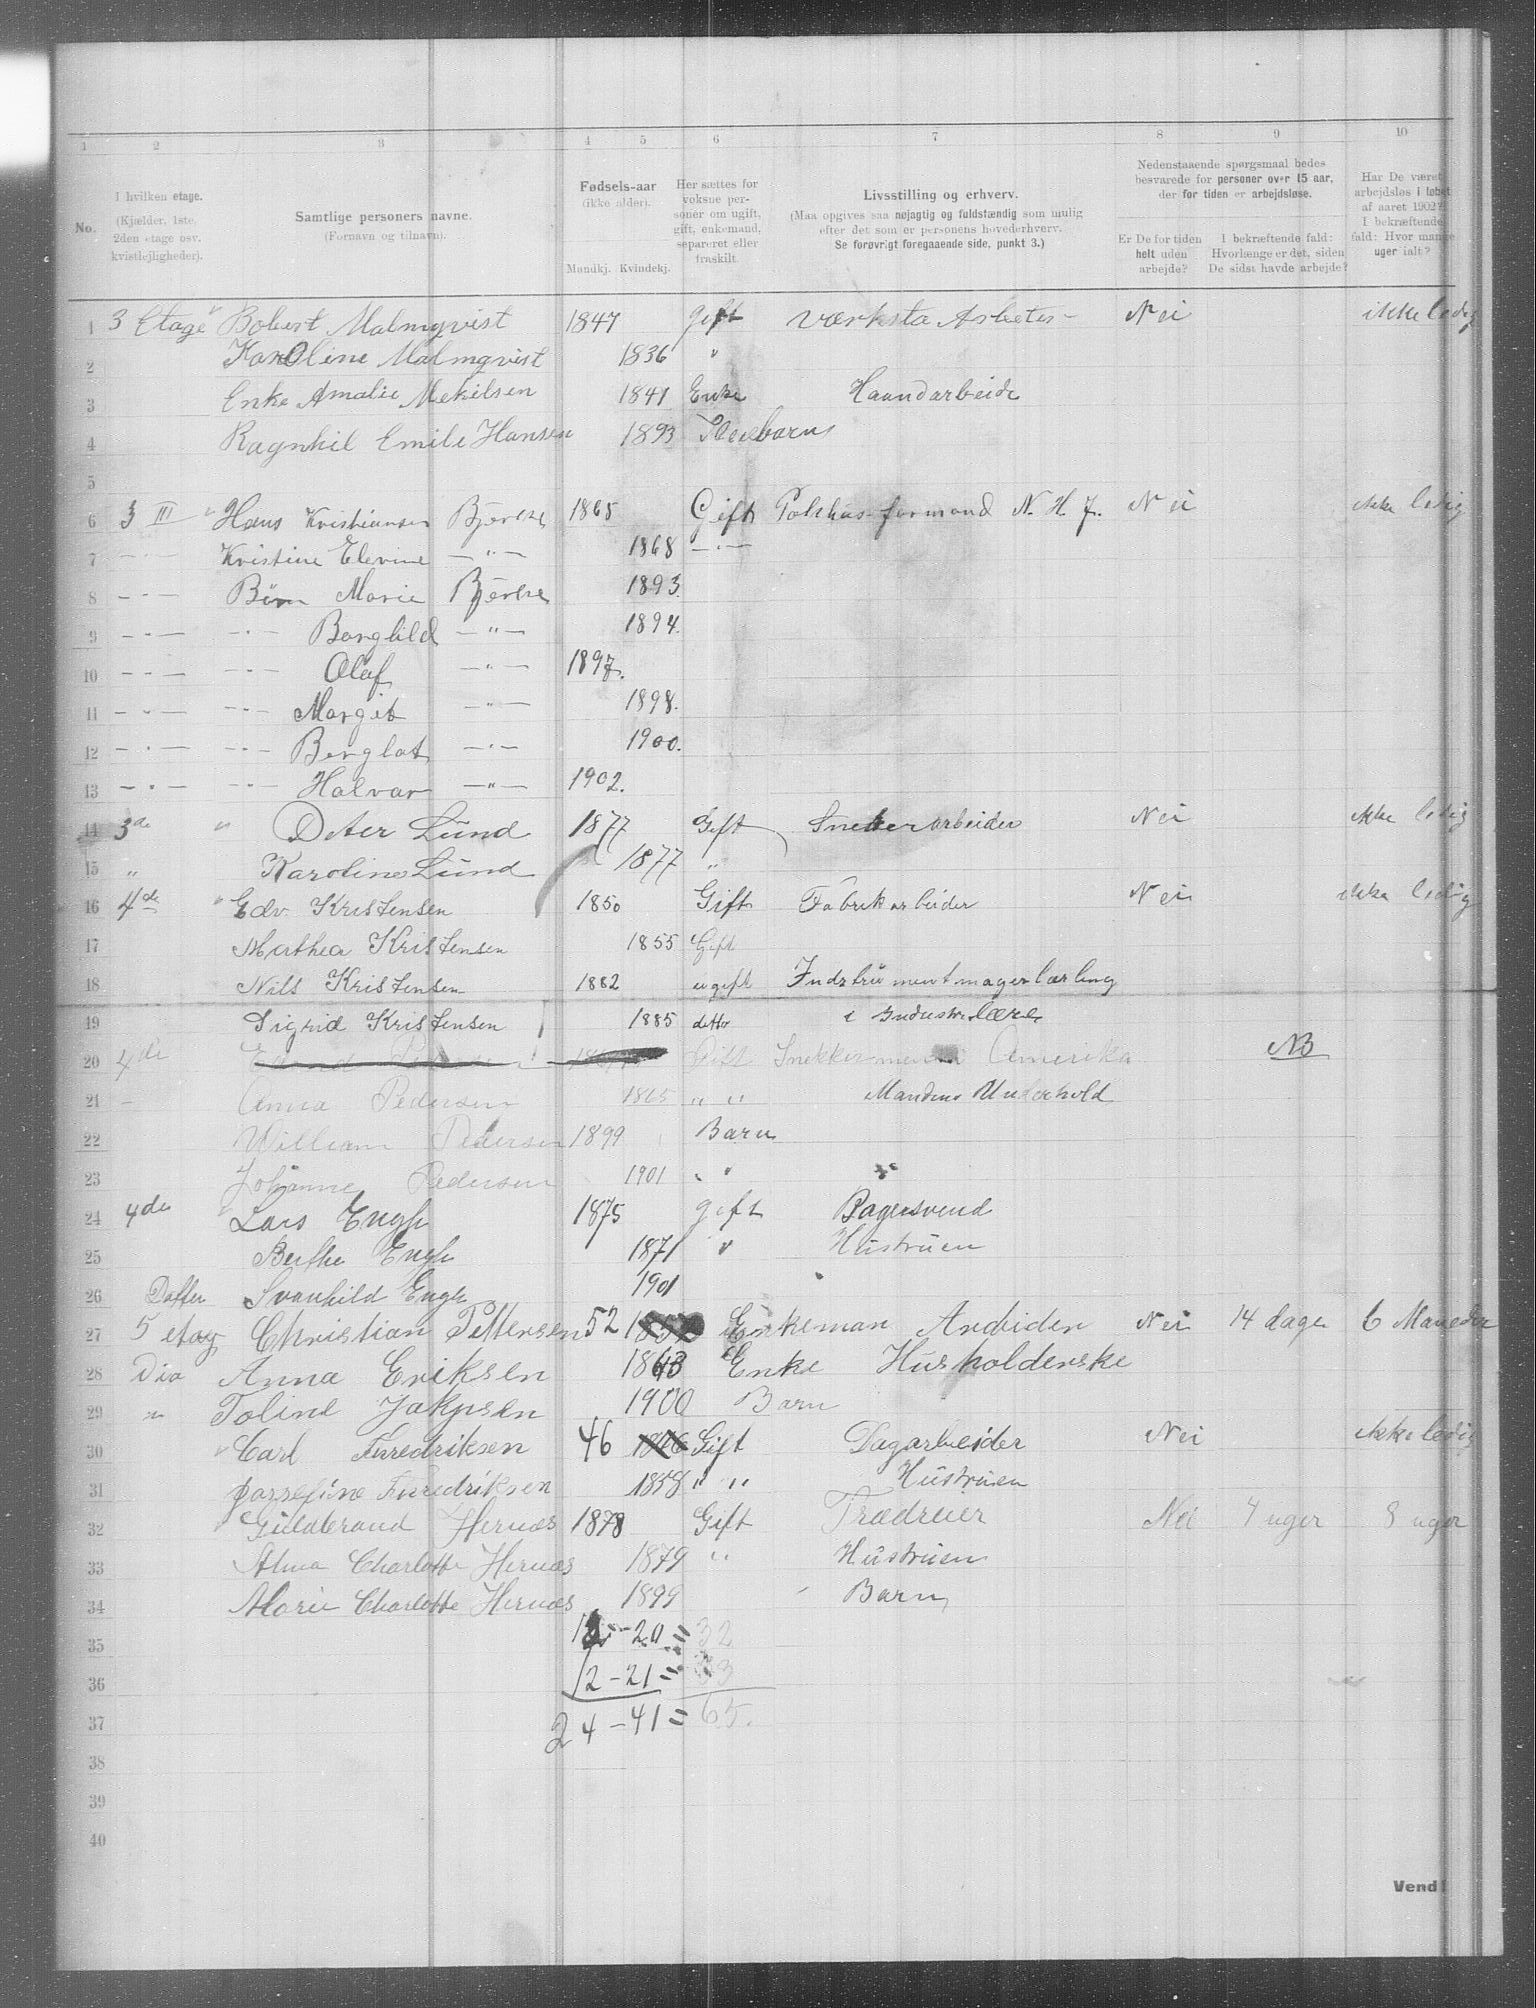 1 2 3 4 5 6 7 8 9 10
No.
I hvilken etage. (Kjælder, 1ste, 2den etage osv. kvistlejligheder).
Samtlige personers navne. (Fornavn og tilnavn).
Fødsels-aar (ikke alder). Mandkj. Kvindekj.
Her sættes for voksne personer om ugift, gift, enkemand, separeret eller fraskilt.
Livsstilling og erhverv. (Maa opgives saa nøjagtig og fuldstændig som mulig efter det som er personens hovederhverv. Se forøvrigt foregaaende side, punkt 3.)
Nedenstaaende spørgsmaal bedes besvarede for personer over 15 aar, der for tiden er arbejdsløse.
Er De for tiden helt uden arbejde?
I bekræftende fald: Hvorlænge er det, siden De sidst havde arbejde?
Har De været arbejdsløs i løbet af aaret 1902? I bekræftende fald: Hvor mange uger ialt?
1 3 Etage " Bobert Malmqvist 1847 gift Værksta Arbeter Nei ikke ledig
2 Karoline Malmqvist 1836 "
3 Enke Amalie Mekilsen 1841 Enke Haandarbeide
4 Ragnhil Emile Hansen 1893 Pleiebarn
5
6 3 III " Hans Kristiansen Bjerke 1865 Gift formand N. H. J. Nei ikke ledig
7 — " — Kristine Elevine — " — 1868 — " —
8 — " — Börn Marie Bjerke 1893.
9 — " — — " — Borghild — " — 1894.
10 — " — — " — Olaf — " — 1897.
11 — " — — " — Margit — " — 1898.
12 — " — — " — Berglot — " — 1900.
13 — " — — " — Halvar — " — 1902.
14 3de " Peter Lund 1877 Gift Snekerarbeider Nei ikke ledig
15 " Karoline Lund 1877 "
16 4de " Edv. Kristensen 1850 Gift Fabrikarbeider Nei ikke ledig
17 Marthea Kristensen 1855 Gift
18 Nils Kristensen 1882 ugift Indstrumentmagerlærling
19 Sigrid Kristensen 1885 detto i Industrilære
20 4de Pedersen Gift Snekker Amerika NB
21 - Anna Pedersen 1865 " " Mandens Underhold
22 William Pedersen 1899 Barn
23 Johanne Pedersen 1901 " " "
24 4de " Lars Engh 1875 gift Bagersvend
25 Berthe Engh 1871 " Hustruen
26 Datter Svanhild Engh 1901
27 5 etag Christian Pettersen 52 Enkeman Arbeider Nei 14 dage 6 Maneder
28 Dito Anna Eriksen 1843 Enke Husholderske
29 " Toline Jakopsen 1900 Barn
30 " Carl Fredriksen 46 1846 Gift Dagarbeider Nei ikke ledig
31 Josefine Fredriksen 1858 " " Hustruen
32 " Guldbrand Hernæs 1878 Gift Trædreier Nei 4 uger 8 uger
33 Alma Charlotte Hernæs 1879 " Hustruen
34 Marie Charlotte Hernæs 1899 Barn
35 12 - 20 = 32
36 12 - 21 = 33
37 24 - 41 = 65.
38
39
40
Vend!